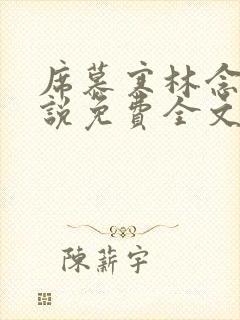 席慕寒林念
說免費全文
陳薪宇